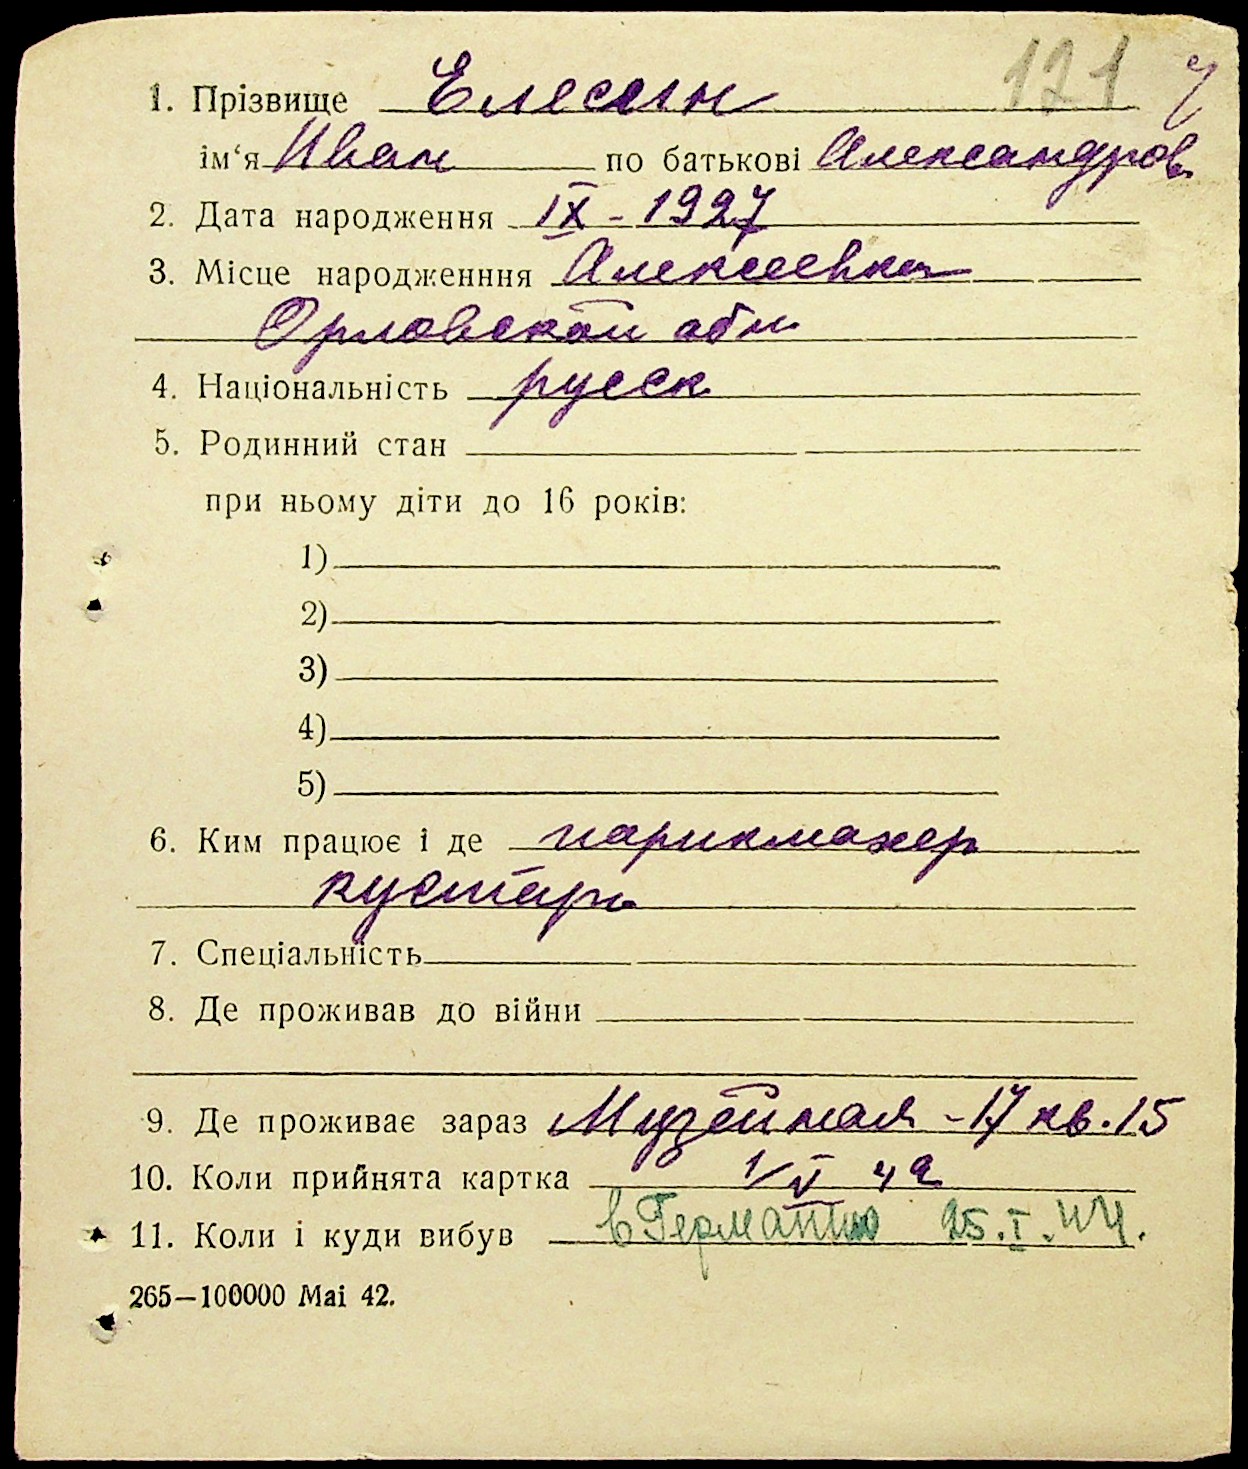 121 ч
1. Прізвище Елесин
ім‘я Иван по батькові Александров.
2. Дата народження IX - 1927
3. Місце народженння Алексеевка
Орловской обл.
4. Національність русск.
5. Родинний стан
при ньому діти до 16 років:
1)
2)
3)
4)
5)
6. Ким працює і де парикмахер
кустарь
7. Спеціальність
8. Де проживав до війни
9. Де проживає зараз Музейная - 17 кв. 15
10. Коли прийнята картка 1/V 42
11. Коли і куди вибув в Германию 25.I.44.
265—100000 Mai 42.